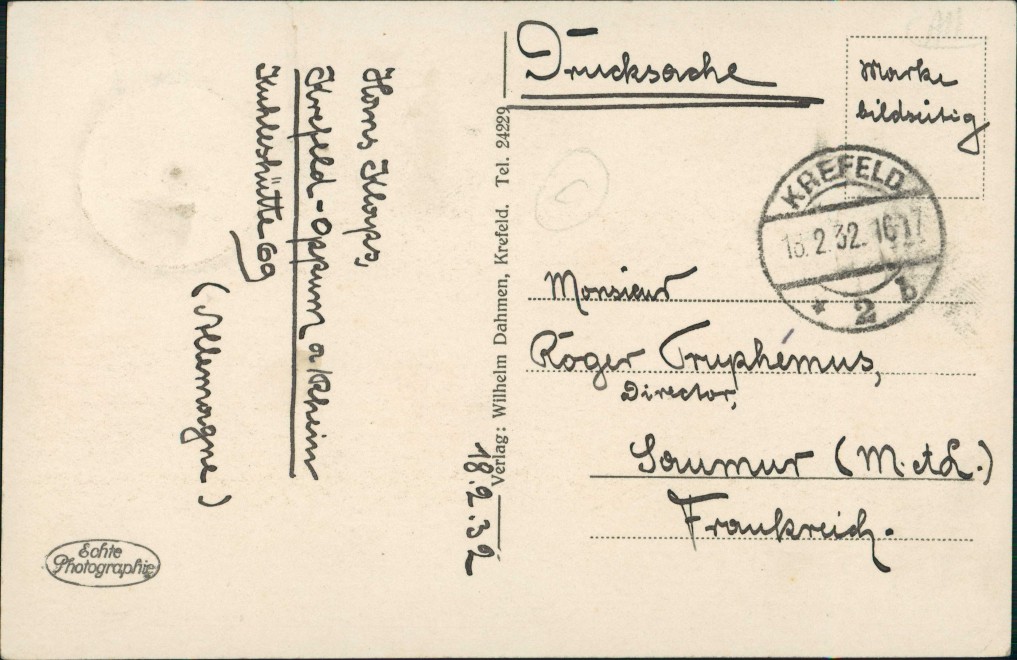 Hans Klops,
Krefeld-Oppum a/Rhein
Kuhleshütte 69
(Allemagne)
Echte
Photographie
18.2.32
Verlag: Wilhelm Dahmen, Krefeld. Tel. 24229
Drucksache
Marke
bildseitig
KREFELD
18.2.32. 16-17
* 2 b
Monsieur
Roger Truphémus,
Director,
Saumur (M. et L.)
Frankreich.